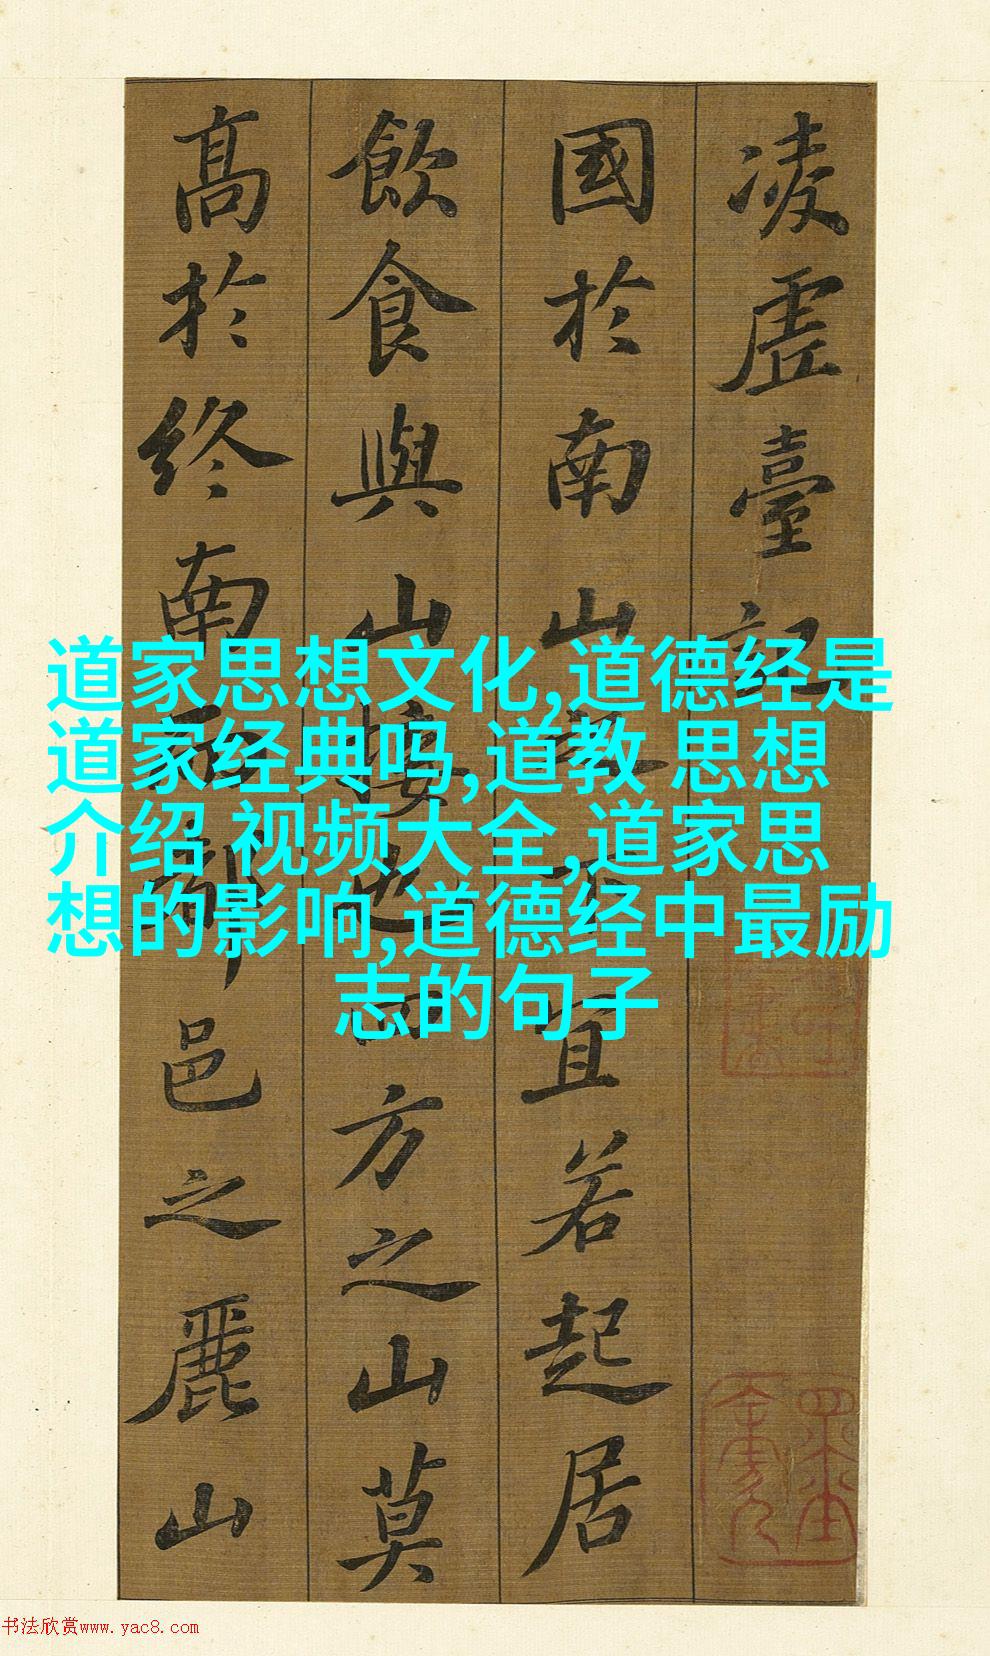 凌虛臺記
國於南山之下宜若起居
飲食與山接也四方之山莫
高於終南而都邑之麗山
道家思想文化,道德经是
道家经典吗,道教 思想
介绍 视频大全,道家思
想的影响,道德经中最励
志的句子
书法欣赏www.yac8.com